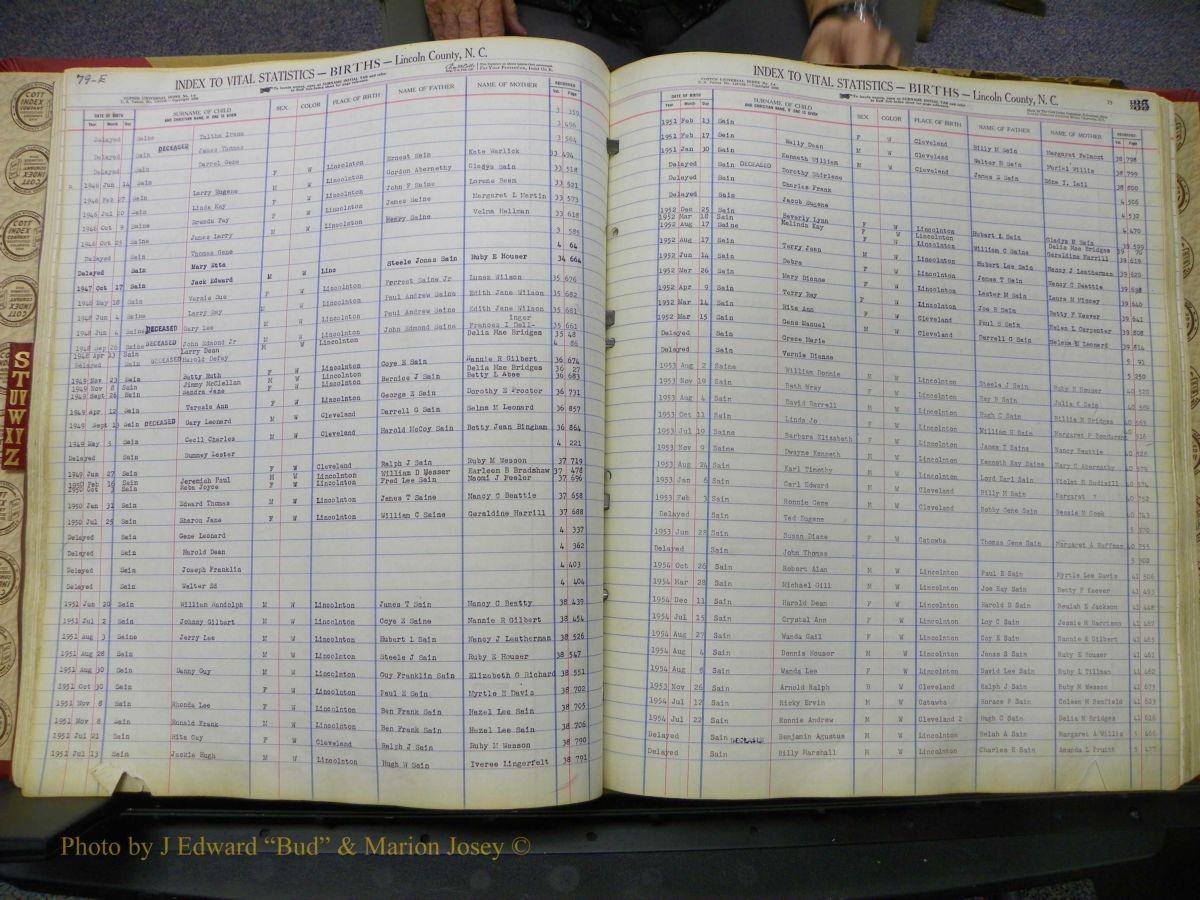 79-E
INDEX TO VITAL STATISTICS — BIRTHS — Lincoln County, N. C.
DATE OF BIRTH SURNAME OF CHILD SEX COLOR PLACE OF BIRTH NAME OF FATHER NAME OF MOTHER RECORDED
Year Month Day AND CHRISTIAN NAME, IF ONE IS GIVEN Vol. Page
Delayed Saine Talitha Irene 3 359
Delayed Sain DECEASED James Thomas 3 496
Delayed Sain Darrel Gene 3 564
1946 Jun 14 Sain Larry Eugene F W Lincolnton Ernest Sain Kate Warlick 33 494
1946 Feb 27 Sain Linda Kay M W Lincolnton Gordon Abernethy Gladys Sain 33 518
1946 Jul 20 Sain Brenda Fay F W Lincolnton John F Saine Lorene Beam 33 521
1946 Oct 9 Saine James Larry F W Lincolnton James Saine Margaret L Martin 33 573
1946 Oct 23 Saine Thomas Gene M W Lincolnton Henry Saine Velma Hallman 33 618
Delayed Sain Mary Etta 3 585
Delayed Sain Jack Edward 4 64
1947 Oct 17 Sain Vernie Sue M W Linc Steele Jonas Sain Ruby E Houser 34 664
1948 May 18 Sain Larry Ray F W Lincolnton Forrest Saine Jr Inez Wilson 35 676
1948 Jun 4 Saine DECEASED Gary Lee M W Lincolnton Paul Andrew Saine Edith Jane Wilson 35 682
1948 Jun 4 Saine John Edmond Jr M W Lincolnton Paul Andrew Saine Edith Jane Wilson 35 681
1948 Sep 26 Saine DECEASED Larry Dean M W Lincolnton John Edmond Saine Frances I Dellinger 35 661
1948 Apr 13 Sain DECEASED Harold Defay Delia Mae Bridges 35 48
Delayed Sain 4 86
1949 Nov 23 Sain Betty Ruth F W Lincolnton Coye E Sain Nannie R Gilbert 36 674
1949 Nov 8 Sain Jimmy McClellan M W Lincolnton Delia Mae Bridges 36 27
1949 Sept 26 Sain Sandra Jane F W Lincolnton Bernice J Sain Betty L Abee 36 683
1949 Apr 12 Sain Teresia Ann F W Lincolnton George E Sain Dorothy E Proctor 36 731
1949 Sept 13 Sain DECEASED Gary Leonard M W Cleveland Darrell G Sain Selma M Leonard 36 857
1949 May 3 Sain Cecil Charles M W Cleveland Harold McCoy Sain Betty Jean Bingham 36 864
Delayed Sain Summey Lester 4 221
1949 Jun 27 Sain Jeremiah Paul F W Cleveland Ralph J Sain Ruby M Wesson 37 719
1950 Feb 16 Sain Reba Joyce M W Lincolnton William D Messer Earleen B Bradshaw 37 478
1950 Oct 5 Sain F W Lincolnton Fred Lee Sain Naomi J Peeler 37 696
1950 Jan 31 Sain Edward Thomas M W Lincolnton James T Saine Nancy C Beattie 37 658
1950 Jul 25 Sain Sharon Jane F W Lincolnton William C Saine Geraldine Harrill 37 688
Delayed Sain Gene Leonard 4 337
Delayed Sain Harold Dean 4 362
Delayed Sain Joseph Franklin 4 403
Delayed Sain Walter Ed 4 404
1951 Jun 20 Sain William Randolph M W Lincolnton James T Sain Nancy C Beatty 38 439
1951 Jul 2 Sain Johnny Gilbert M W Lincolnton Coye E Saine Nannie R Gilbert 38 454
1951 Aug 3 Saine Jerry Lee M W Lincolnton Hubert L Sain Nancy J Leatherman 38 526
1951 Aug 28 Sain M W Lincolnton Steele J Sain Ruby E Houser 38 547
1951 Aug 30 Sain Danny Guy M W Lincolnton Guy Franklin Sain Elizabeth G Richard 38 551
1951 Oct 30 Sain F W Lincolnton Paul E Sain Myrtle E Davis 38 702
1951 Nov 8 Sain Rhonda Lee F W Lincolnton Ben Frank Sain Hazel Lee Sain 38 705
1951 Nov 8 Sain Ronald Frank M W Lincolnton Ben Frank Sain Hazel Lee Sain 38 706
1951 Jul 21 Sain Rita Guy F W Cleveland Ralph J Sain Ruby M Wesson 38 790
1951 Jul 13 Sain Jackie Hugh M W Lincolnton Hugh W Sain Iveree Lingerfelt 38 791
INDEX TO VITAL STATISTICS — BIRTHS — Lincoln County, N. C.
79
DATE OF BIRTH SURNAME OF CHILD SEX COLOR PLACE OF BIRTH NAME OF FATHER NAME OF MOTHER RECORDED
Year Month Day AND CHRISTIAN NAME, IF ONE IS GIVEN Vol. Page
1951 Feb 13 Sain Wally Dean F W Cleveland Billy M Sain Margaret Belmont 38 798
1951 Feb 17 Sain Kenneth William M W Cleveland Walter B Sain Muriel Willis 38 799
1951 Jan 30 Sain Dorothy Shirlene M W Cleveland James E Sain 38 800
Delayed Sain DECEASED Charles Frank 4 506
Delayed Sain Jacob Eugene 4 532
Delayed Sain 4 470
1952 Dec 25 Sain Beverly Lynn F W Lincolnton Hubert L Sain Gladys M Sain 39 599
1952 Mar 18 Sain Melinda Kay F W Lincolnton Delia Mae Bridges
1952 Aug 17 Saine F W Lincolnton William C Saine Geraldine Harrill 39 619
1952 Aug 17 Sain Terry Jean M W Lincolnton Hubert Lee Sain Nancy J Leatherman 39 620
1952 Jun 14 Sain Debra F W Lincolnton James T Sain Nancy C Beattie 39 698
1952 Mar 26 Sain Mary Dianne F W Lincolnton Lester M Sain Laura M Mincey 39 640
1952 Apr 9 Sain Terry Ray M W Lincolnton Joe R Sain Betty F Keever 39 641
1952 Mar 14 Sain Rita Ann F W Lincolnton Paul S Sain Helen L Carpenter 39 808
1952 Mar 15 Sain Gene Manuel M W Cleveland Darrell G Sain Selema M Leonard 39 814
Delayed Sain Grace Marie 5 91
Delayed Sain Vernie Dianne 5 250
1953 Aug 2 Saine William Donnie M W Lincolnton Steele J Sain Ruby E Houser 40 528
1953 Nov 19 Sain Beth Wray F W Lincolnton Ray B Sain Julia K Sain 40 569
1953 Aug 4 Sain David Darrell M W Lincolnton Hugh C Sain Billie M Bridges 40 563
1953 Oct 11 Sain Linda Jo F W Lincolnton William H Sain Margaret P Henderson 40 516
1953 Jul 19 Saine Barbara Elizabeth F W Lincolnton James T Sain Nancy Beattie 40 526
1953 Nov 9 Sain Dwayne Kenneth M W Lincolnton Kenneth Ray Saine Mary C Abernathy 40 579
1953 Aug 24 Sain Karl Timothy M W Lincolnton Loyd Earl Sain Violet M Rudisill 40 574
1953 Jan 6 Sain Carl Edward M W Cleveland Billy M Sain Margaret 40 752
1953 Feb 3 Sain Ronnie Gene M W Cleveland Bobby Gene Sain Bessie M Cook 40 743
Delayed Sain Ted Eugene 5 370
1953 Jun 28 Sain Susan Diane F W Catawba Thomas Gene Sain Margaret A Huffman 40 755
Delayed Sain John Thomas 5 302
1954 Oct 26 Sain Robert Alan M W Lincolnton Paul E Sain Myrtle Lee Davis 41 506
1954 Mar 28 Sain Michael Gill M W Lincolnton Joe Ray Sain Betty F Keever 41 493
1954 Dec 11 Sain Harold Dean F W Lincolnton Harold D Sain Beulah E Jackson 41 448
1954 Jul 15 Sain Crystal Ann F W Lincolnton Loy C Sain Jessie M Harrison 41 487
1954 Aug 27 Sain Wanda Gail F W Lincolnton Coy E Sain Nannie R Gilbert 41 465
1954 Aug 4 Sain Dennis Houser M W Lincolnton Jonas S Sain Ruby E Houser 41 461
1954 Aug 8 Sain Wanda Lee F W Lincolnton David Lee Sain Ruby L Tillman 41 462
1953 Nov 26 Sain Arnold Ralph B W Cleveland Ralph J Sain Ruby M Wesson 41 673
1954 Jul 12 Sain Ricky Ervin M W Catawba Horace P Sain Coleen H Benfield 41 623
1954 Jul 22 Sain Ronnie Andrew M W Cleveland 2 Hugh C Sain Delia M Bridges 41 616
Delayed Sain DECEASED Benjamin Agustus M W Lincolnton Selah A Sain Margaret A Willis 5 466
Delayed Sain Billy Marshall M W Lincolnton Charles H Sain Amanda L Pruitt 5 477
COTT INDEX COMPANY
S T U V W XY Z
Photo by J Edward "Bud" & Marion Josey ©